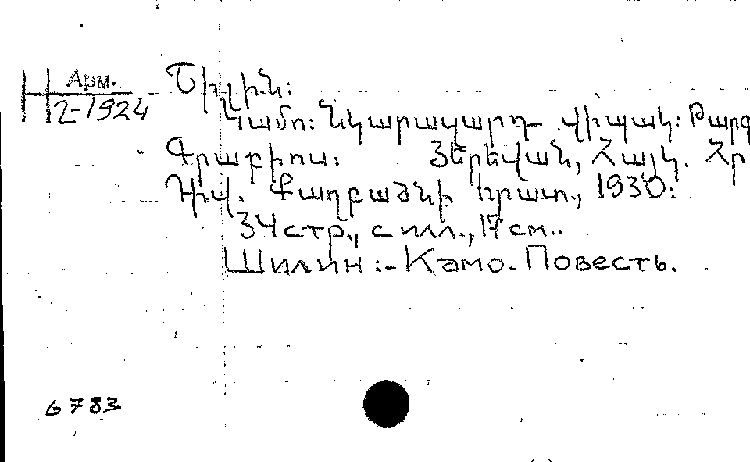 Арм.
2-1924
Շիլին:
Կամո: Նկարազարդ վիպակ: Թարգ
Գրաբիոս: Յերեվան, Հայկ. Հր
Դիվ. Քաղբաժնի հրատ., 1930:
34 стр., с илл., 17 см..
Шилин:- Камо. Повесть.
6783